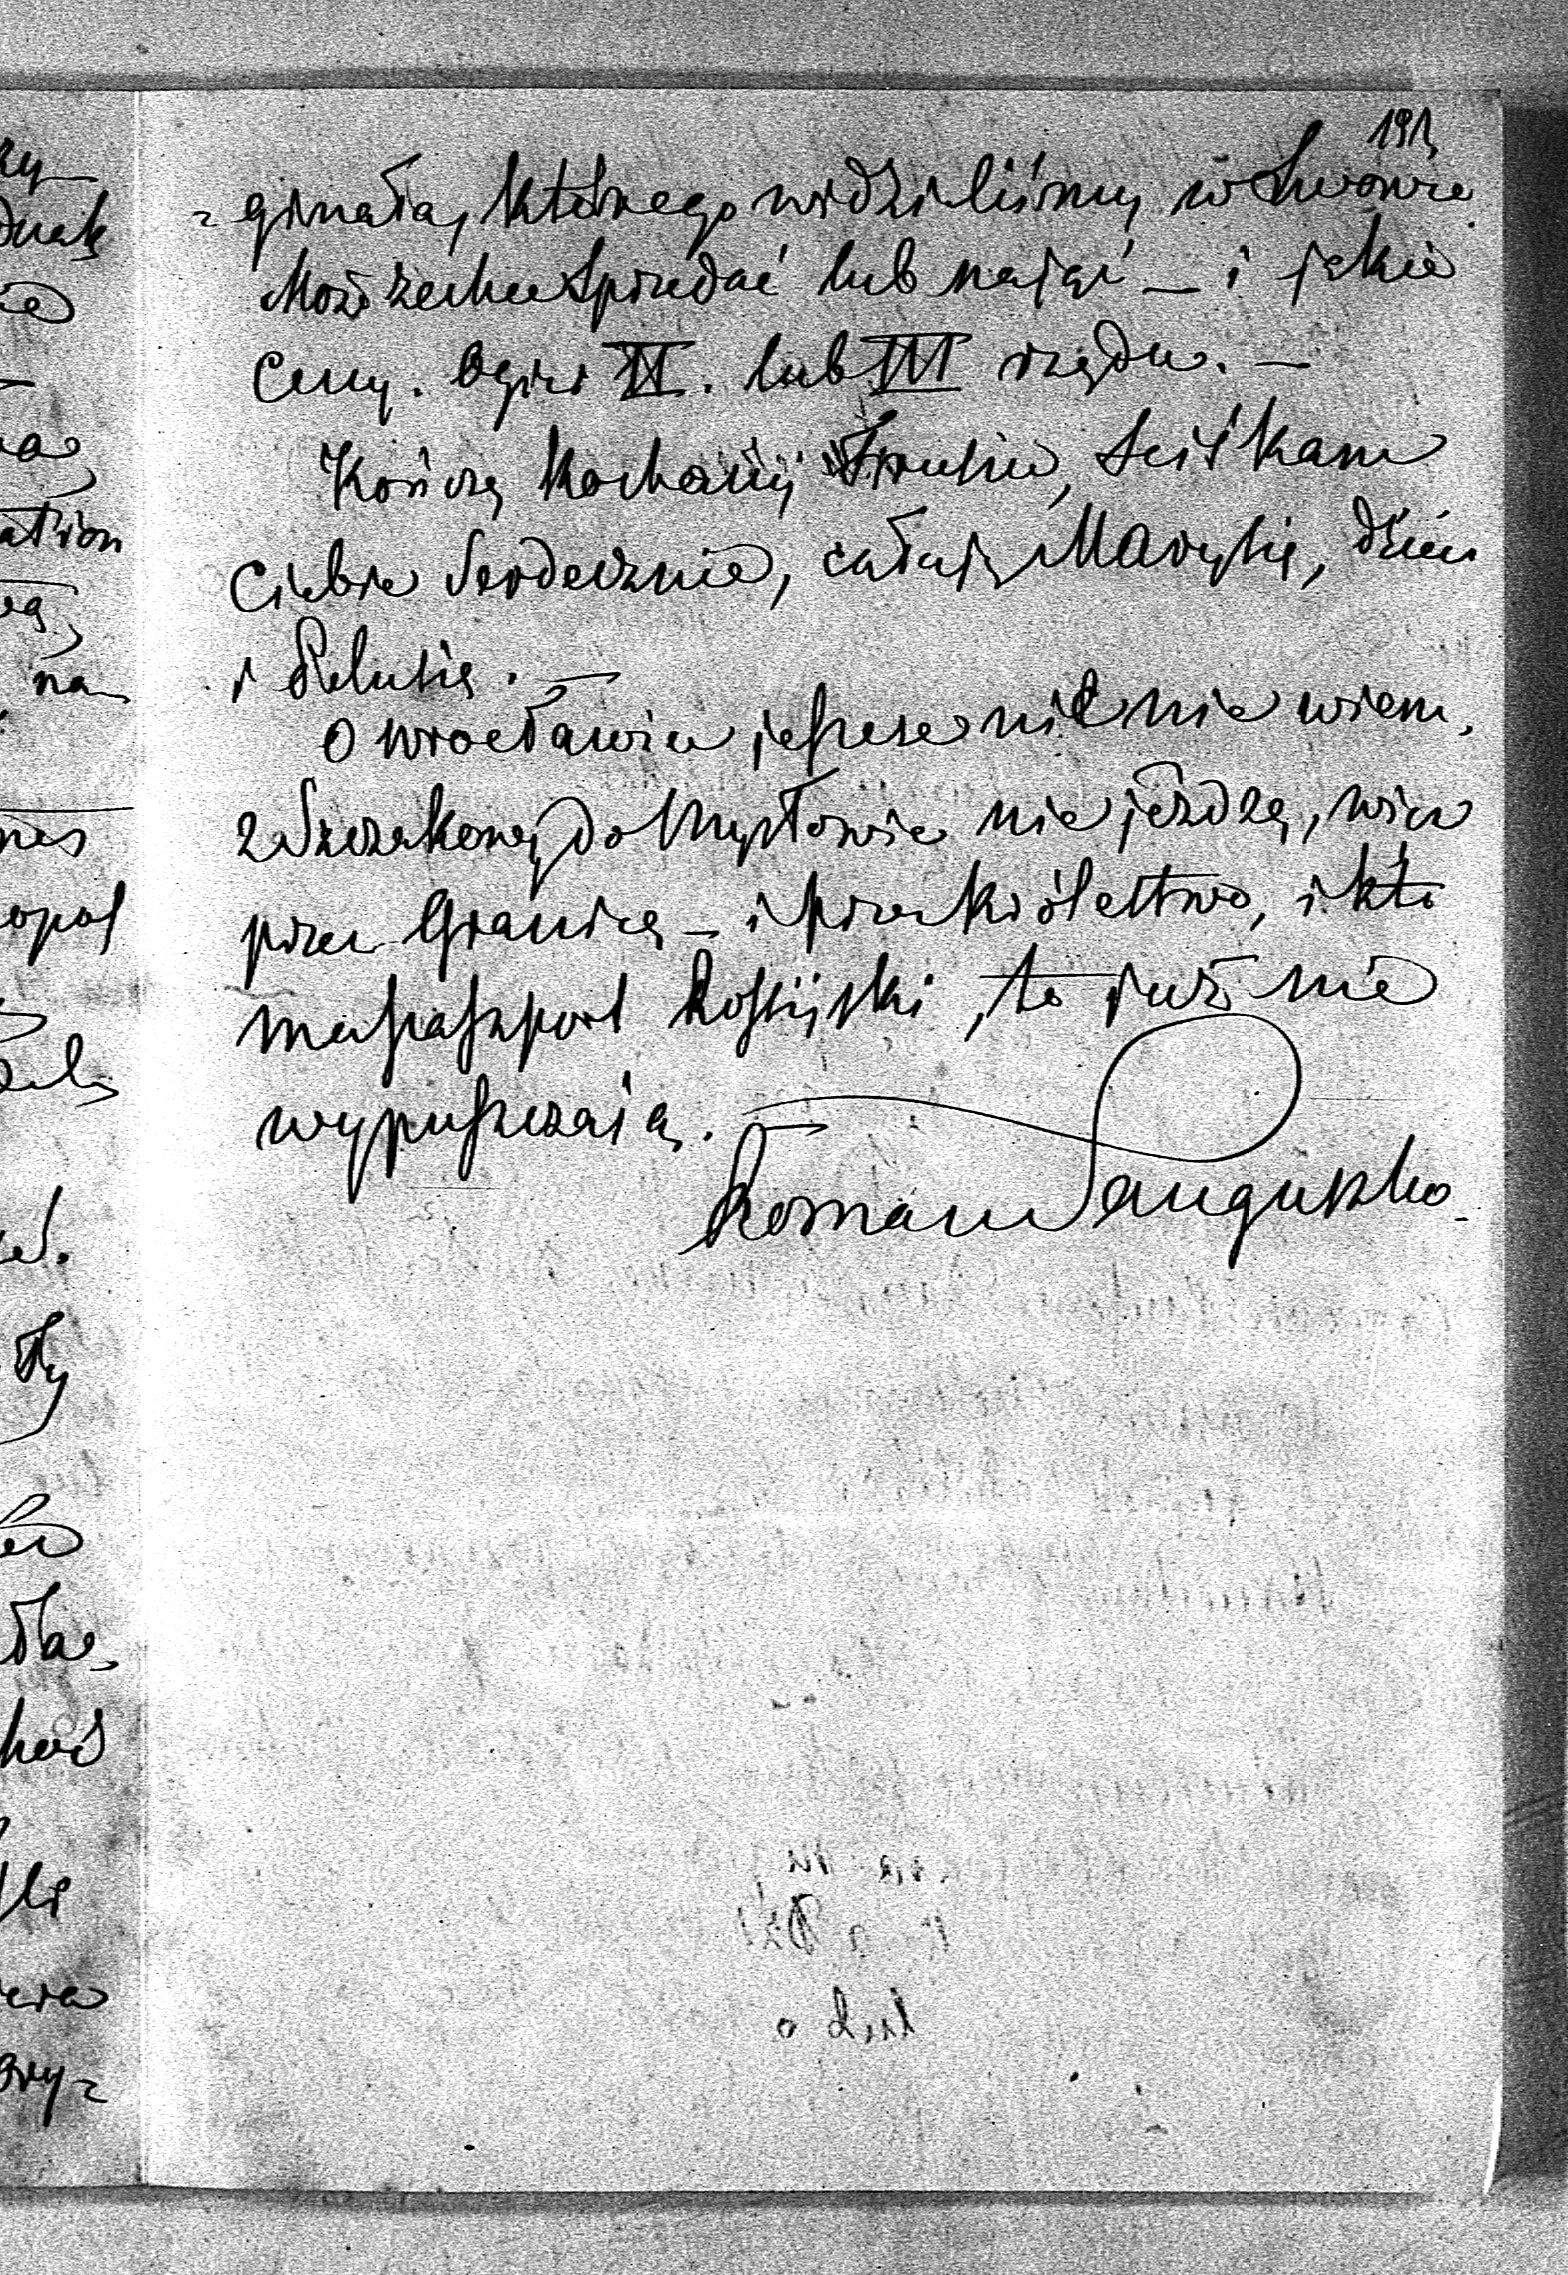 191
= ginała, którego widzieliśmy w Lwowie
Może zechce sprzedać lub nająć — i jakie
Ceny. Ogier II. lub III rzędu. —
Kończę Kochany, Sciskam
Ciebie Serdecznie, całuję Marysię, dzieci
i Helusię. —
O Wrocławiu jeszcze nic nie wiem,
z Szczakowy do Mysłowic nie jeżdżą, więc
przez Granicę — i przez królestwo, i kto
ma paszport Rossijski, to już nie
wypuszczają. —
Roman Sanguszko